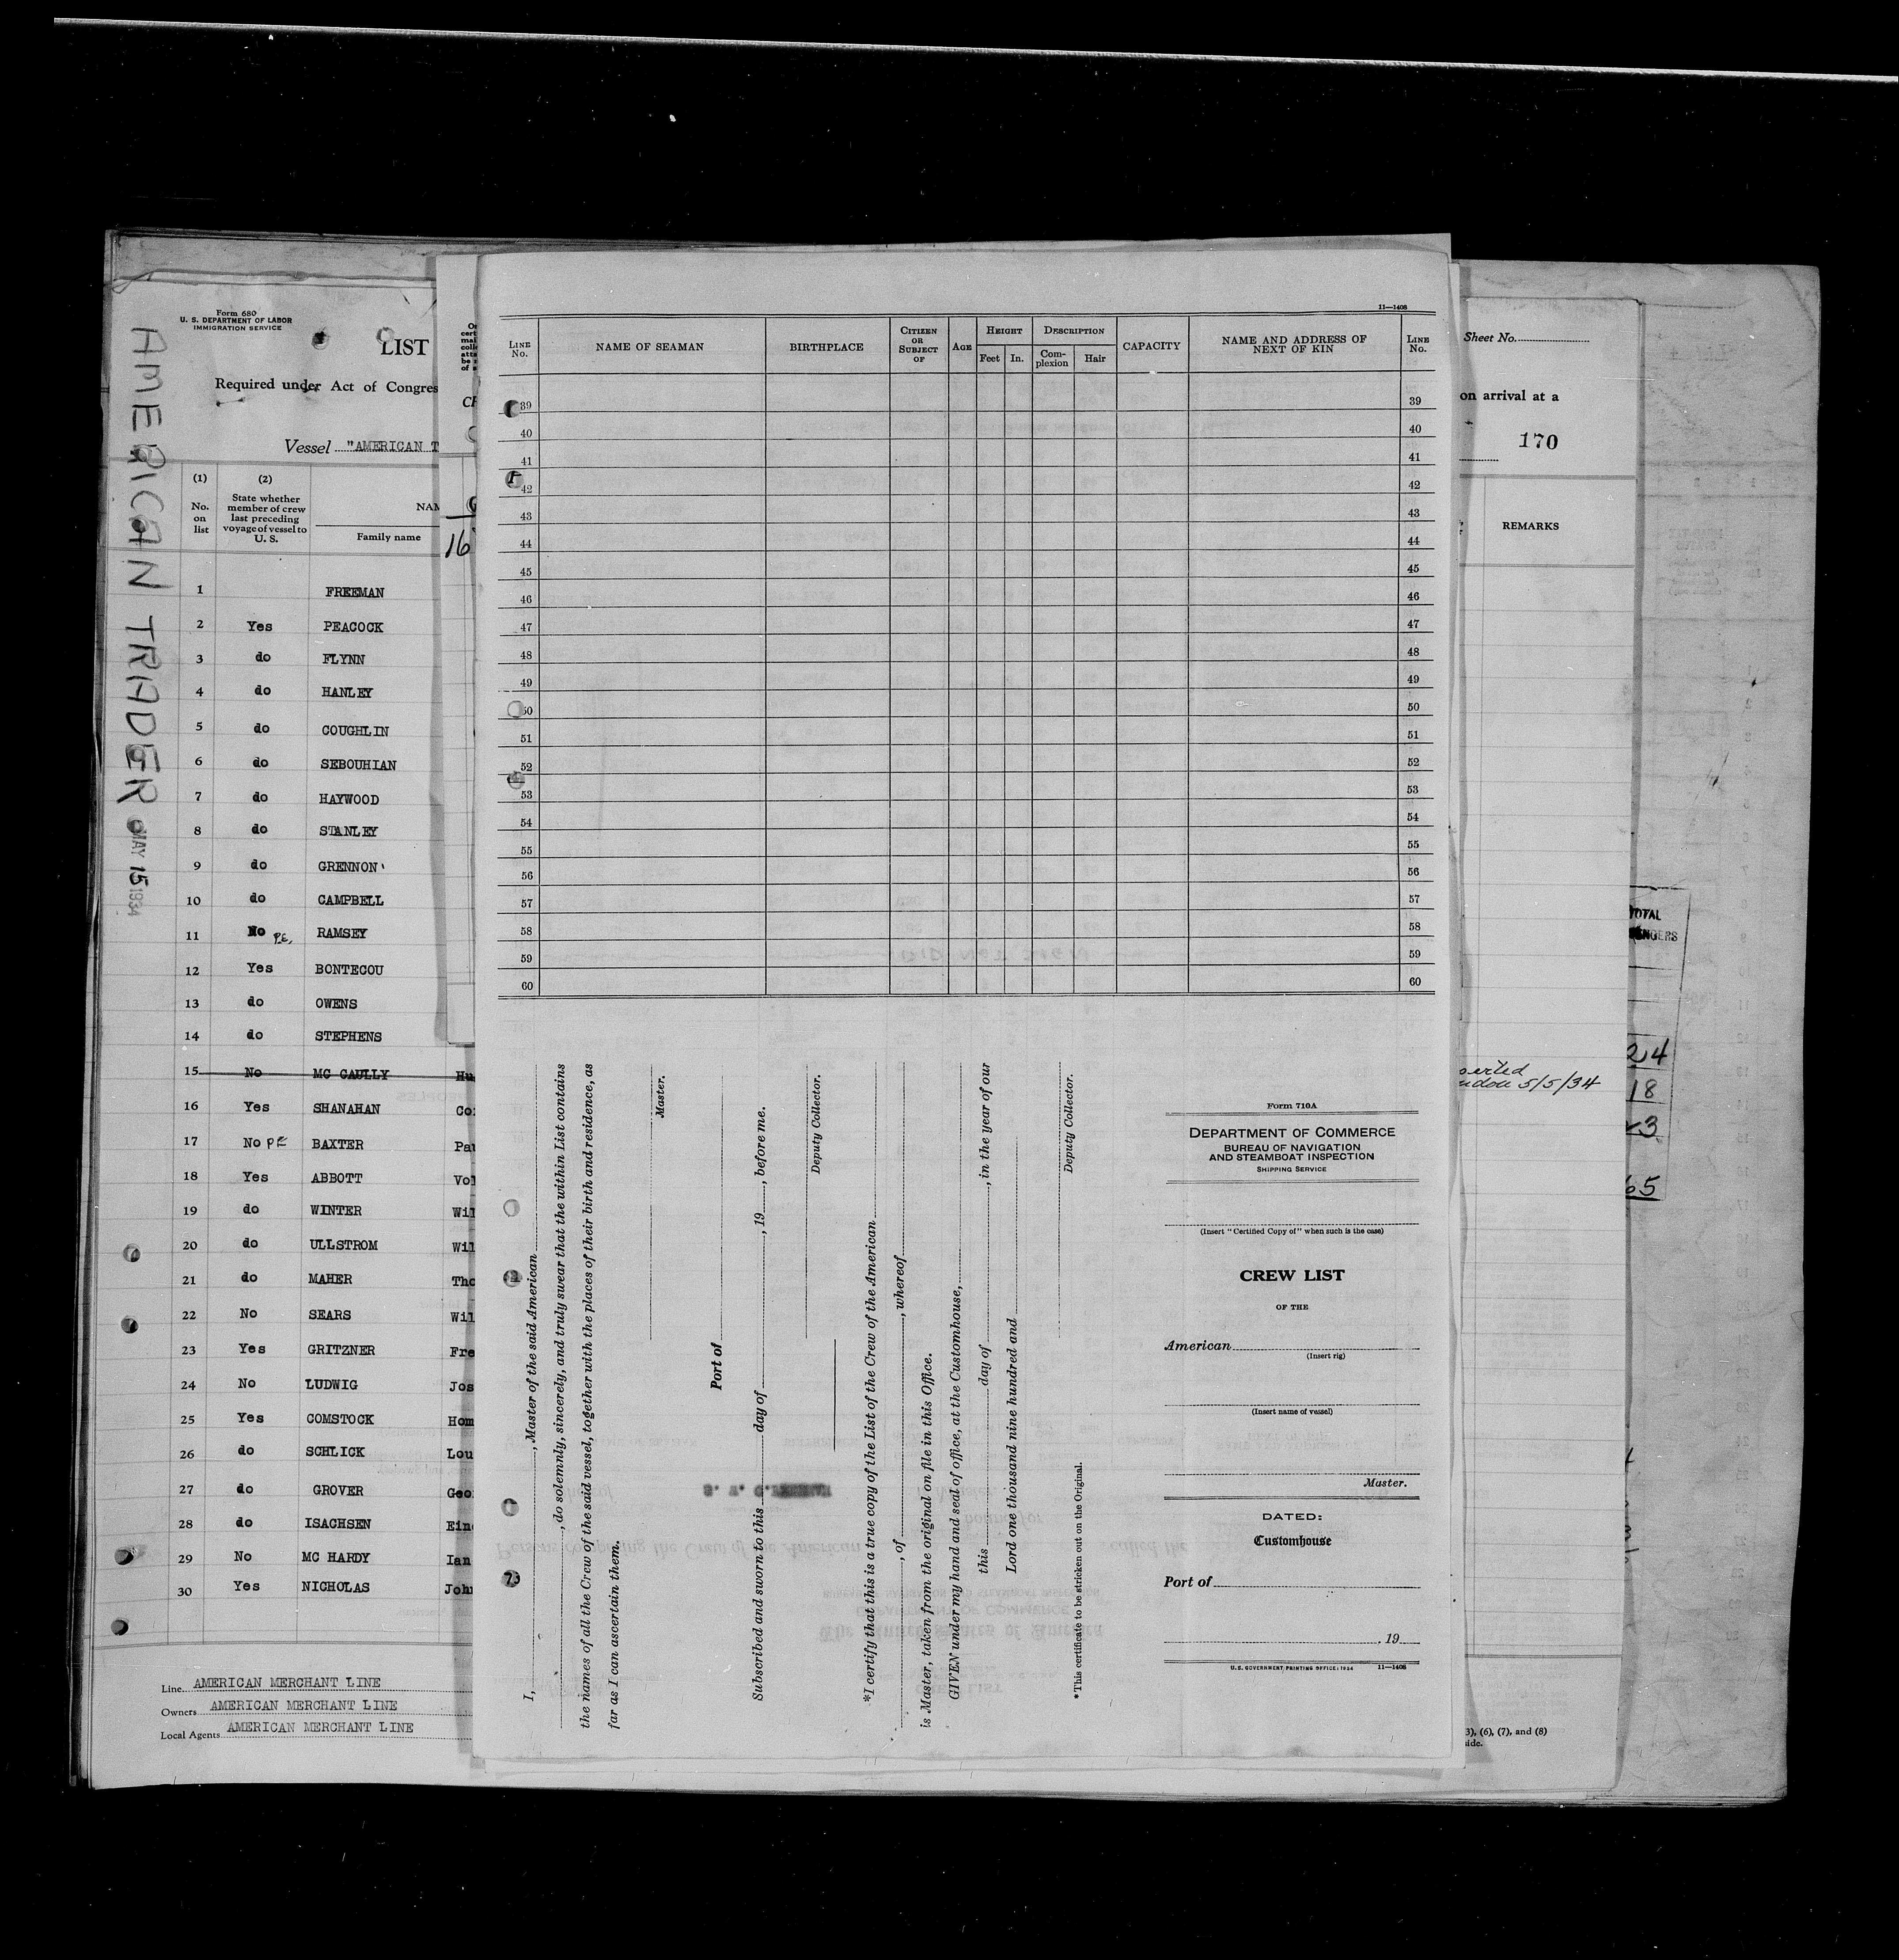 Form 680
U. S. DEPARTMENT OF LABOR
IMMIGRATION SERVICE
LIST
Required under Act of Congres
Vessel "AMERICAN T
AMERICAN TRADER MAY 15 1934
(1) (2)
No. on list
State whether member of crew last preceding voyage of vessel to U. S.
NAM
Family name
16
1 FREEMAN
2 Yes PEACOCK
3 do FLYNN
4 do HANLEY
5 do COUGHLIN
6 do SEBOUHIAN
7 do HAYWOOD
8 do STANLEY
9 do GRENNON
10 do CAMPBELL
11 No P.E. RAMSEY
12 Yes BONTECOU
13 do OWENS
14 do STEPHENS
15 No MC CAULLY Hu
16 Yes SHANAHAN Co
17 No PE BAXTER Pa
18 Yes ABBOTT Vo
19 do WINTER Wil
20 do ULLSTROM Wil
21 do MAHER Tho
22 No SEARS Wil
23 Yes GRITZNER Fre
24 No LUDWIG Jos
25 Yes COMSTOCK Hom
26 do SCHLICK Lou
27 do GROVER Geo
28 do ISACHSEN Ein
29 No MC HARDY Ian
30 Yes NICHOLAS Joh
Line AMERICAN MERCHANT LINE
Owners AMERICAN MERCHANT LINE
Local Agents AMERICAN MERCHANT LINE
11—1408
LINE No. NAME OF SEAMAN BIRTHPLACE CITIZEN OR SUBJECT OF AGE HEIGHT Feet In. DESCRIPTION Complexion Hair CAPACITY NAME AND ADDRESS OF NEXT OF KIN LINE No.
39 39
40 40
41 41
42 42
43 43
44 44
45 45
46 46
47 47
48 48
49 49
50 50
51 51
52 52
53 53
54 54
55 55
56 56
57 57
58 58
59 59
60 60
I, , Master of the said American
, do solemnly, sincerely, and truly swear that the within List contains
the names of all the Crew of the said vessel, together with the places of their birth and residence, as
far as I can ascertain them.
Master.
Port of
Subscribed and sworn to this day of , 19 , before me.
Deputy Collector.
*I certify that this is a true copy of the List of the Crew of the American
, of , whereof
is Master, taken from the original on file in this Office.
GIVEN under my hand and seal of office, at the Customhouse,
this day of , in the year of our
Lord one thousand nine hundred and
Deputy Collector.
*This certificate to be stricken out on the Original.
Form 710A
DEPARTMENT OF COMMERCE
BUREAU OF NAVIGATION
AND STEAMBOAT INSPECTION
SHIPPING SERVICE
(Insert "Certified Copy of" when such is the case)
CREW LIST
OF THE
American
(Insert rig)
(Insert name of vessel)
Master.
DATED:
Customhouse
Port of
, 19
U. S. GOVERNMENT PRINTING OFFICE: 1934 11—1408
Sheet No.
on arrival at a
170
REMARKS
5/5/34
TOTAL
24
18
23
65
3), (6), (7), and (8)
side.